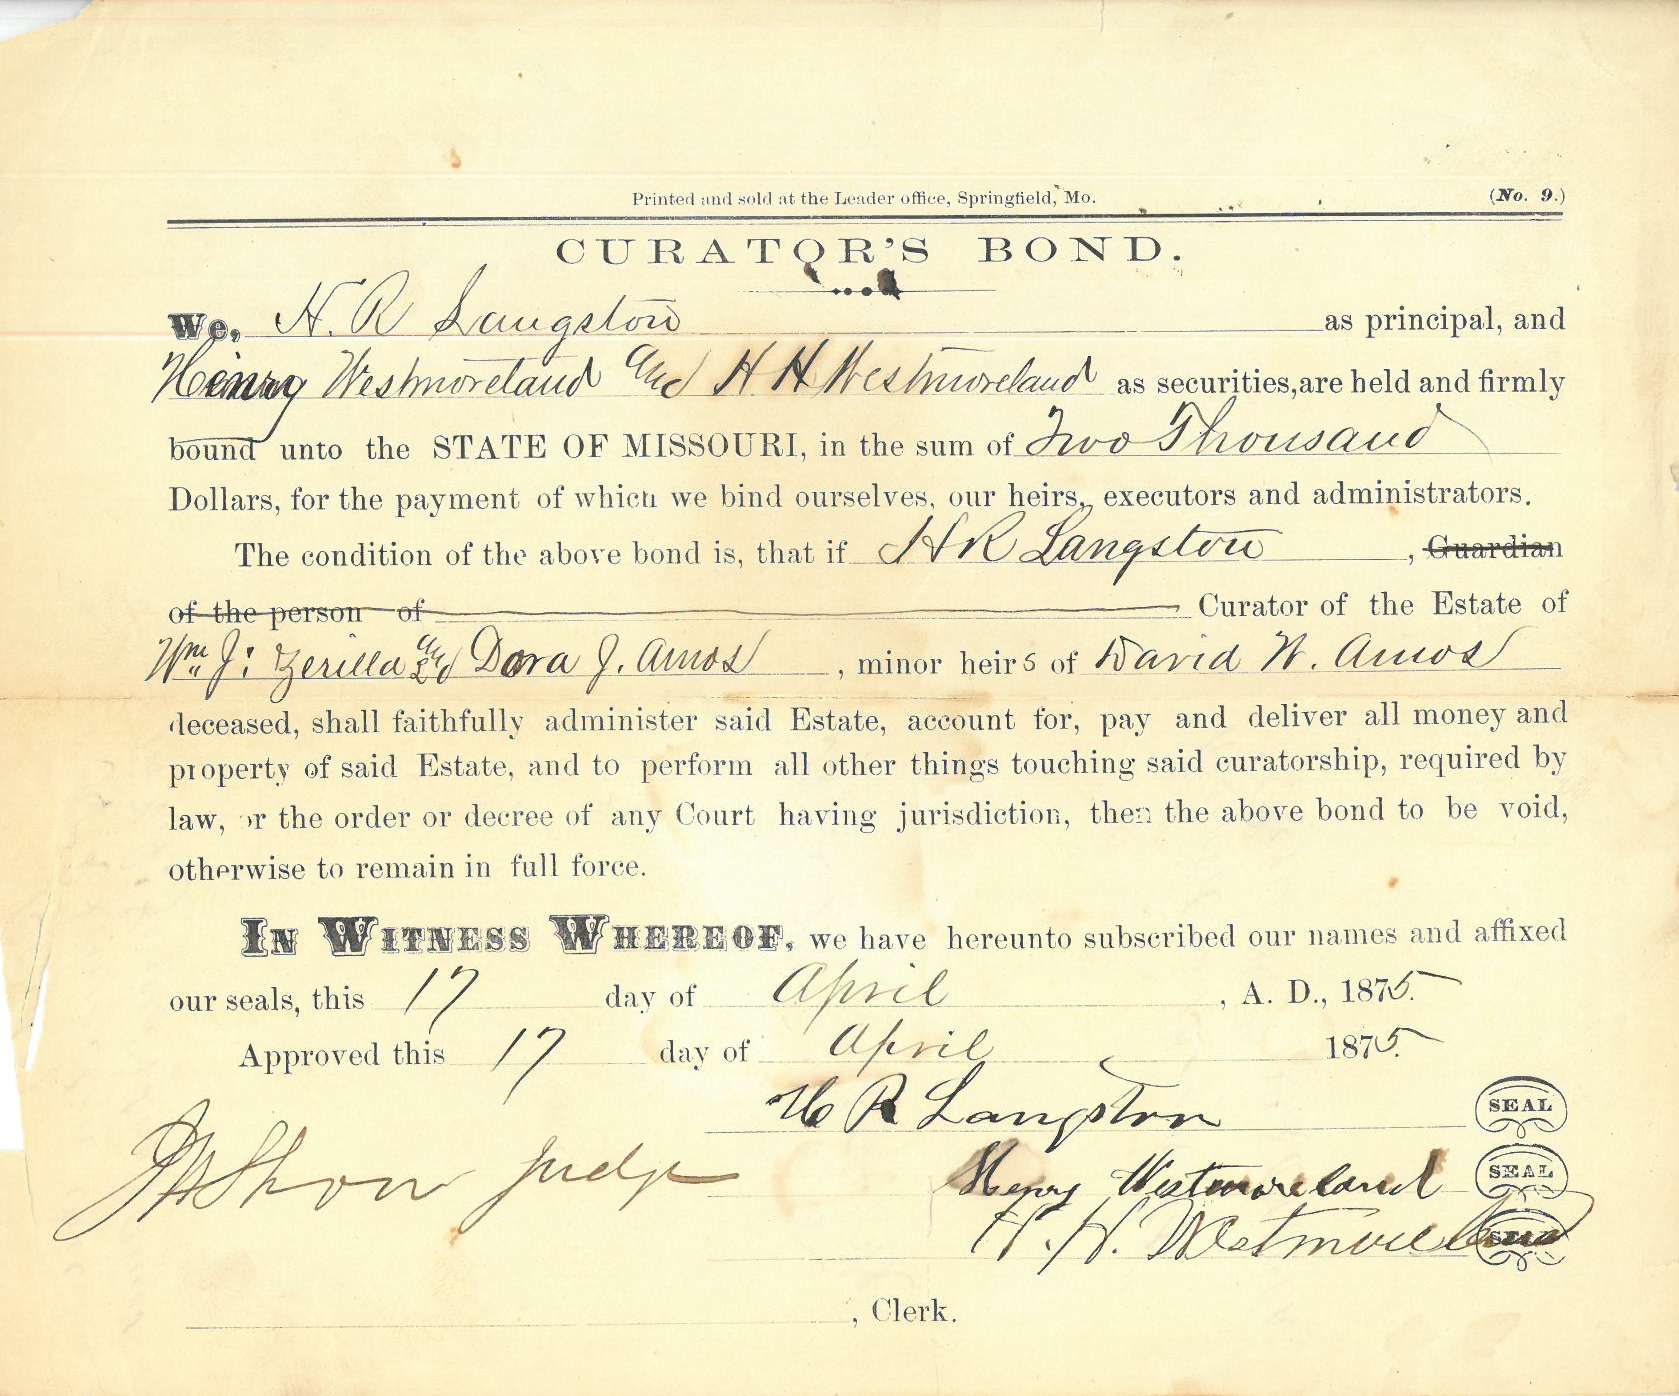 Printed and sold at the Leader office, Springfield, Mo. (No. 9.)
CURATOR'S BOND.
We, H. R Langston as principal, and
Henry Westmoreland and H H Westmoreland as securities, are held and firmly
bound unto the STATE OF MISSOURI, in the sum of Two Thousand
Dollars, for the payment of which we bind ourselves, our heirs, executors and administrators.
The condition of the above bond is, that if H R Langston, Guardian
of the person of Curator of the Estate of
Wm J. Zerilla and Dora J. Amos, minor heirs of David W. Amos
deceased, shall faithfully administer said Estate, account for, pay and deliver all money and
property of said Estate, and to perform all other things touching said curatorship, required by
law, or the order or decree of any Court having jurisdiction, then the above bond to be void,
otherwise to remain in full force.
IN WITNESS WHEREOF, we have hereunto subscribed our names and affixed
our seals, this 17 day of April, A. D., 1875.
Approved this 17 day of April 1875.
H R Langston SEAL
Judge
Henry Westmoreland SEAL
H. H. Westmoreland SEAL
, Clerk.